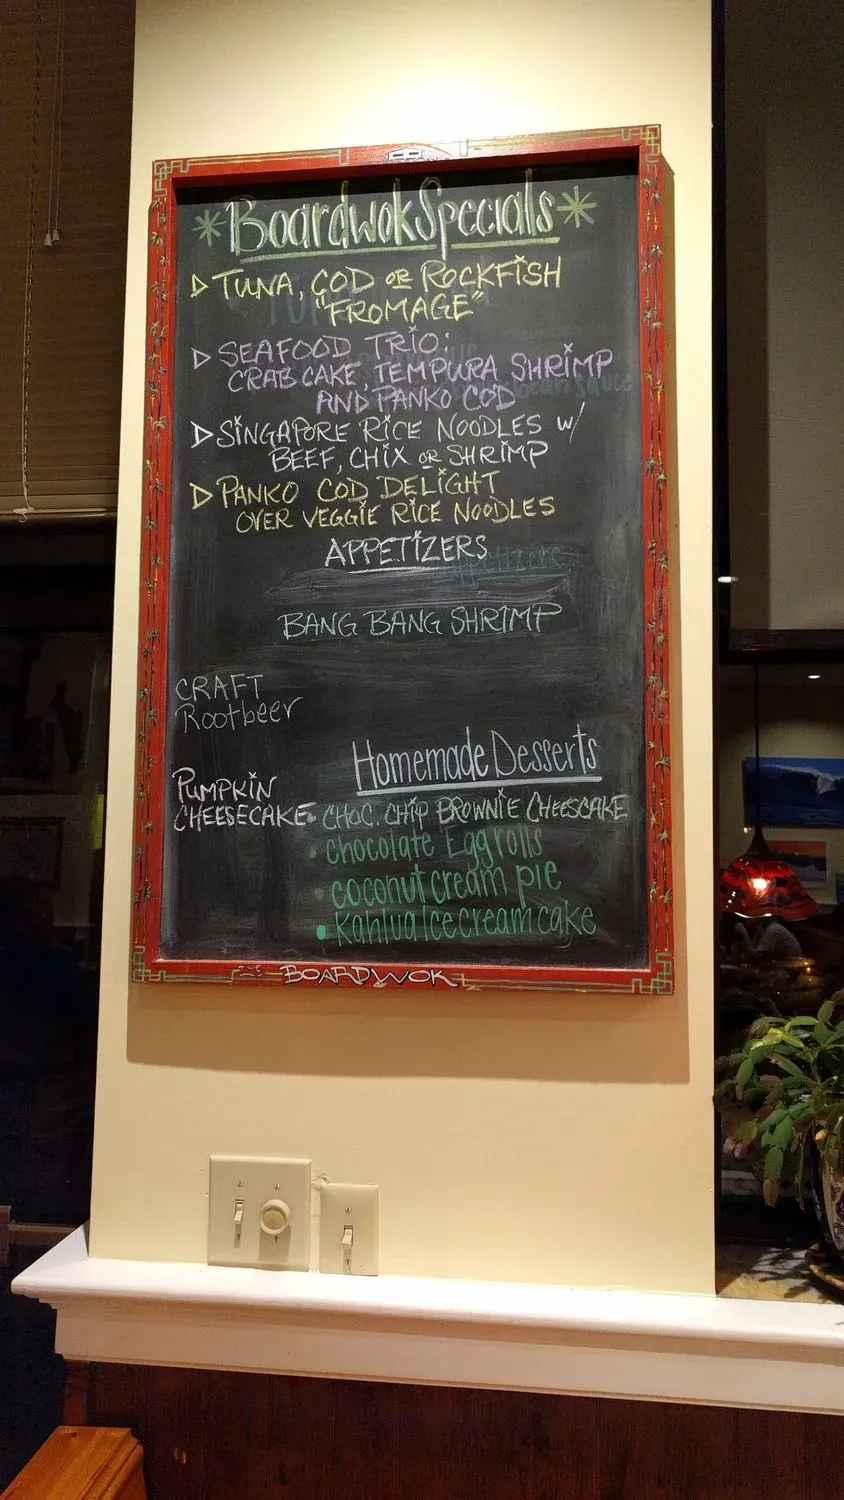 *Boardwok Specials*
▷ TUNA, COD OR ROCKFISH
"FROMAGE"
▷ SEAFOOD TRIO:
CRAB CAKE, TEMPURA SHRIMP
AND PANKO COD
▷ SINGAPORE RICE NOODLES W/
BEEF, CHIX OR SHRIMP
▷ PANKO COD DELIGHT
OVER VEGGIE RICE NOODLES
APPETIZERS
Appetizers
BANG BANG SHRIMP
CRAFT
Rootbeer
Homemade Desserts
PUMPKIN
CHEESECAKE
• CHOC. CHIP BROWNIE CHEESCAKE
• chocolate Eggrolls
• coconut cream pie
• Kahlua Icecream cake
BOARDWOK